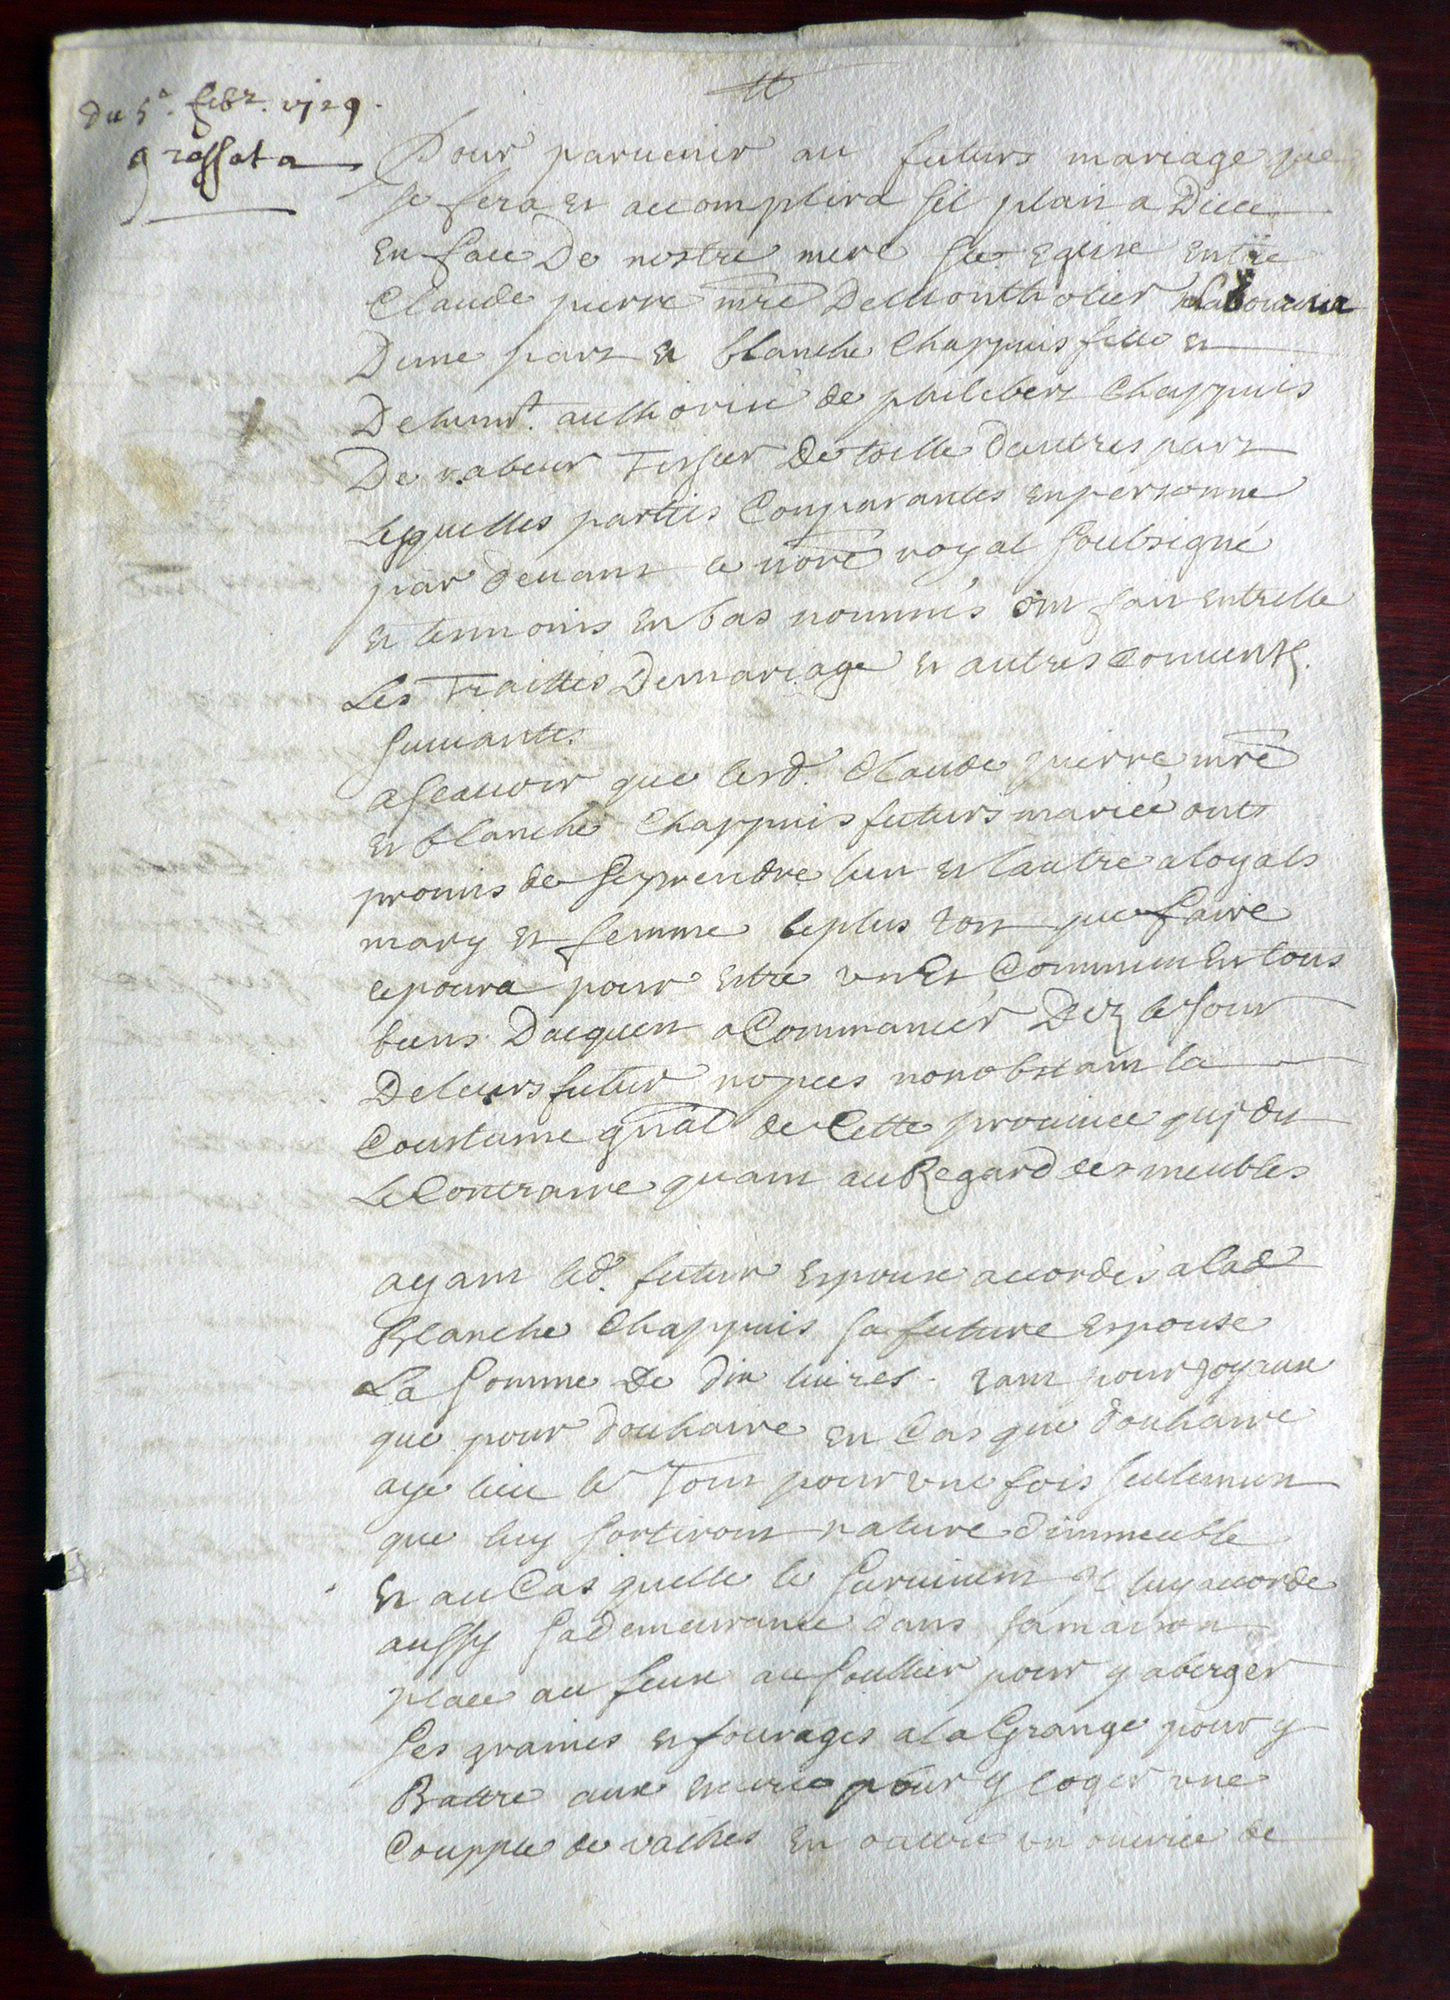 du 5e. febr. 1729.
grossat a
Pour paruenir au futurs mariage que
se fera et accomplira sil plait a Dieu
En face De nostre mere Ste Eglise Entre
Claude pierre mre De Montholier Laboureur
Dune part et blanche Chappuis fille et
Dehumt. authorisé de philibert Chappuis
De Tissier De toille dautres part
Lesquelles parties Comparantes en personne
par deuant le nore royal soubsigné
et temoins en bas nommés ont fait entrelle
Les Traittés De mariage et autres Conuents.
suiuantes
a sçauoir que lesd. Claude pierre mre
et blanche Chappuis futurs mariée onts
promis de se prendre lun et lautre a loyals
mary et femme le plus tost que faire
ce poura pour estre vn et Commun en tous
biens Dacquest a Commancér Dez le Jour
De leurs futur nopces nonobstant la
Coustume gnâl de Cette prouince quj dit
Le Contraire quant au Regard des meubles
ayant led. futur Espoux accordés a lad
Blanche Chappuis sa future Espouse
La somme De dix liures tant pour Joyaux
que pour douhaire en Cas que douhaire
aye lieu le Tout pour vne fois seulement
que luy sortiront nature dimmeuble
Et au Cas quelle le suruiuent Il luy accorde
aussy sa demeurance dans sa maison
place au feux au soullier pour y aberger
ses graines et fourages a la Grange pour y
Battre aux pour y loger vne
Coupple de vaches En outre vn ouurée de